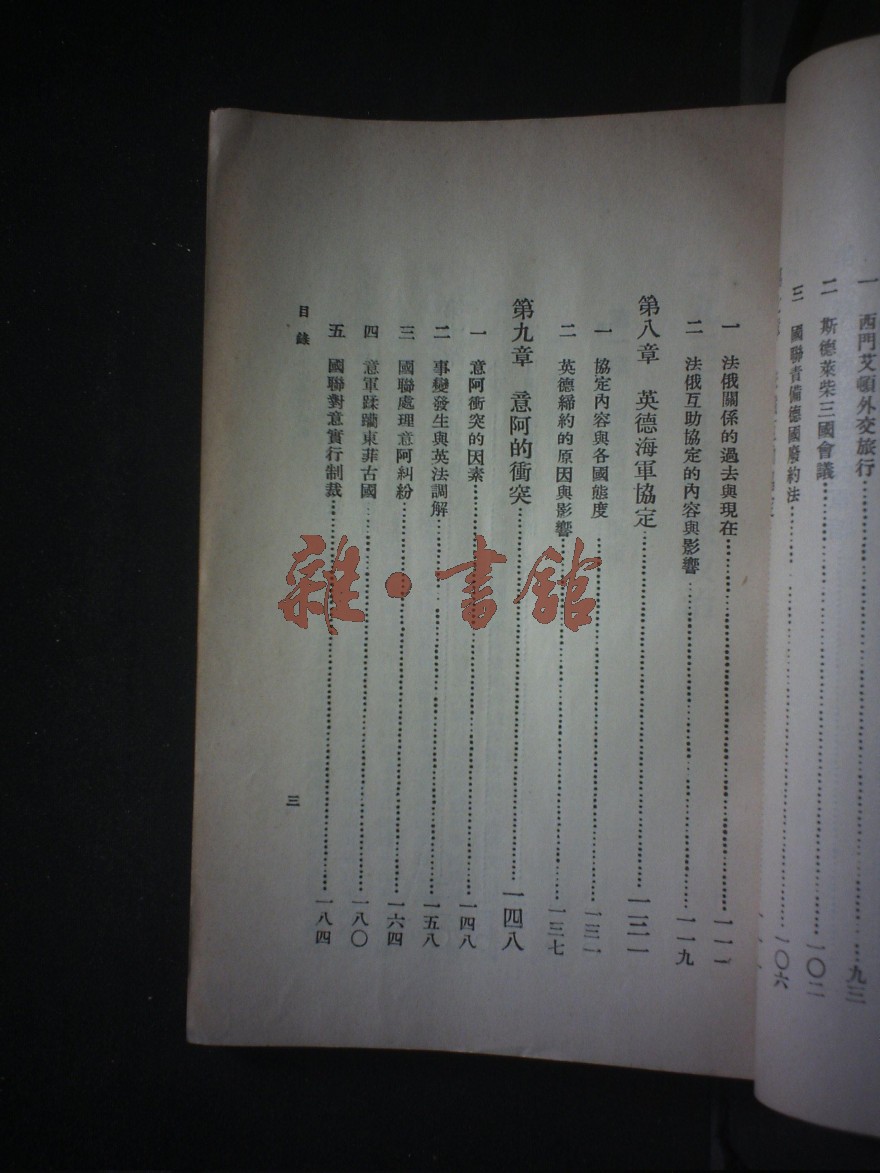 一 西門艾頓外交旅行……九三
二 斯德萊柴三國會議……一〇二
三 國聯責備德國廢約法……一〇六
一 法俄關係的過去與現在……一一一
二 法俄互助協定的內容與影響……一一九
第八章 英德海軍協定……一三一
一 協定內容與各國態度……一三一
二 英德締約的原因與影響……一三七
第九章 意阿的衝突……一四八
一 意阿衝突的因素……一四八
二 事變發生與英法調解……一五八
三 國聯處理意阿糾紛……一六四
四 意軍蹂躪東菲古國……一八〇
五 國聯對意實行制裁……一八四
目錄
三
雜·書館